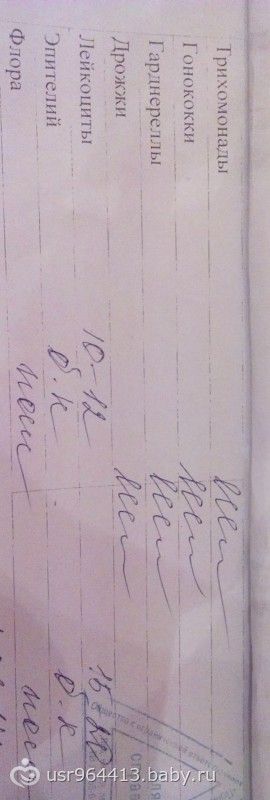 Трихомонады нет
Гонококки нет
Гарднереллы нет
Дрожжи нет
Лейкоциты 10-12 15-20
Эпителий б.к б.к
Флора
Общество с ограниченной
usr964413.baby.ru